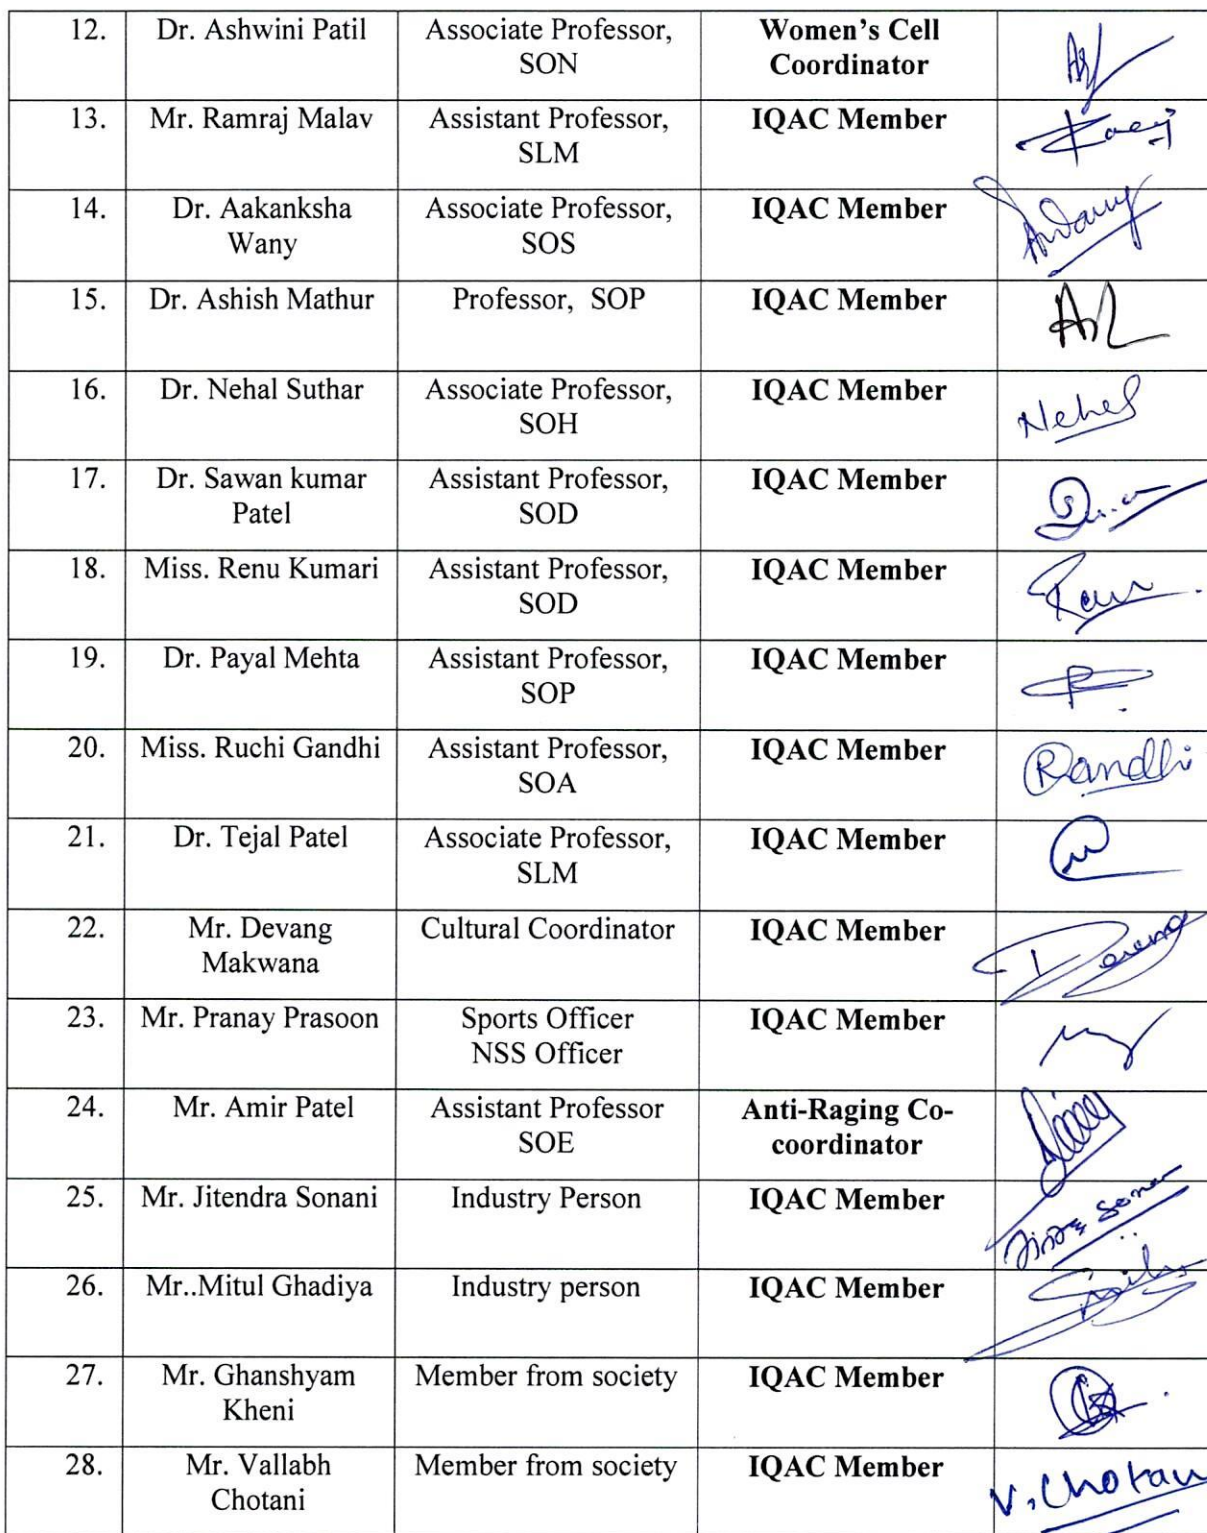 12. Dr. Ashwini Patil Associate Professor, Women's Cell
SON Coordinator
13. Mr. Ramraj Malav Assistant Professor, IQAC Member
SLM
14. Dr. Aakanksha Associate Professor, IQAC Member
Wany SOS
15. Dr. Ashish Mathur Professor, SOP IQAC Member
16. Dr. Nehal Suthar Associate Professor, IQAC Member
SOH
Nehal
17. Dr. Sawan kumar Assistant Professor, IQAC Member
Patel SOD
18. Miss. Renu Kumari Assistant Professor, IQAC Member
SOD
19. Dr. Payal Mehta Assistant Professor, IQAC Member
SOP
20. Miss. Ruchi Gandhi Assistant Professor, IQAC Member
SOA
21. Dr. Tejal Patel Associate Professor, IQAC Member
SLM
22. Mr. Devang Cultural Coordinator IQAC Member
Makwana
23. Mr. Pranay Prasoon Sports Officer IQAC Member
NSS Officer
24. Mr. Amir Patel Assistant Professor Anti-Raging Co-
SOE coordinator
25. Mr. Jitendra Sonani Industry Person IQAC Member
26. Mr..Mitul Ghadiya Industry person IQAC Member
27. Mr. Ghanshyam Member from society IQAC Member
Kheni
28. Mr. Vallabh Member from society IQAC Member
Chotani